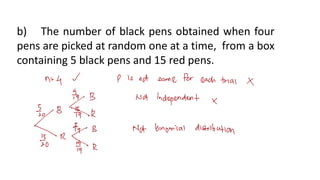 b) The number of black pens obtained when four
pens are picked at random one at a time, from a box
containing 5 black pens and 15 red pens.
n=4 ✓ P is not same for each trial X
4/19 B Not independent X
5/20 B
15/19 R
B Not binomial distribution
15/20 R
R